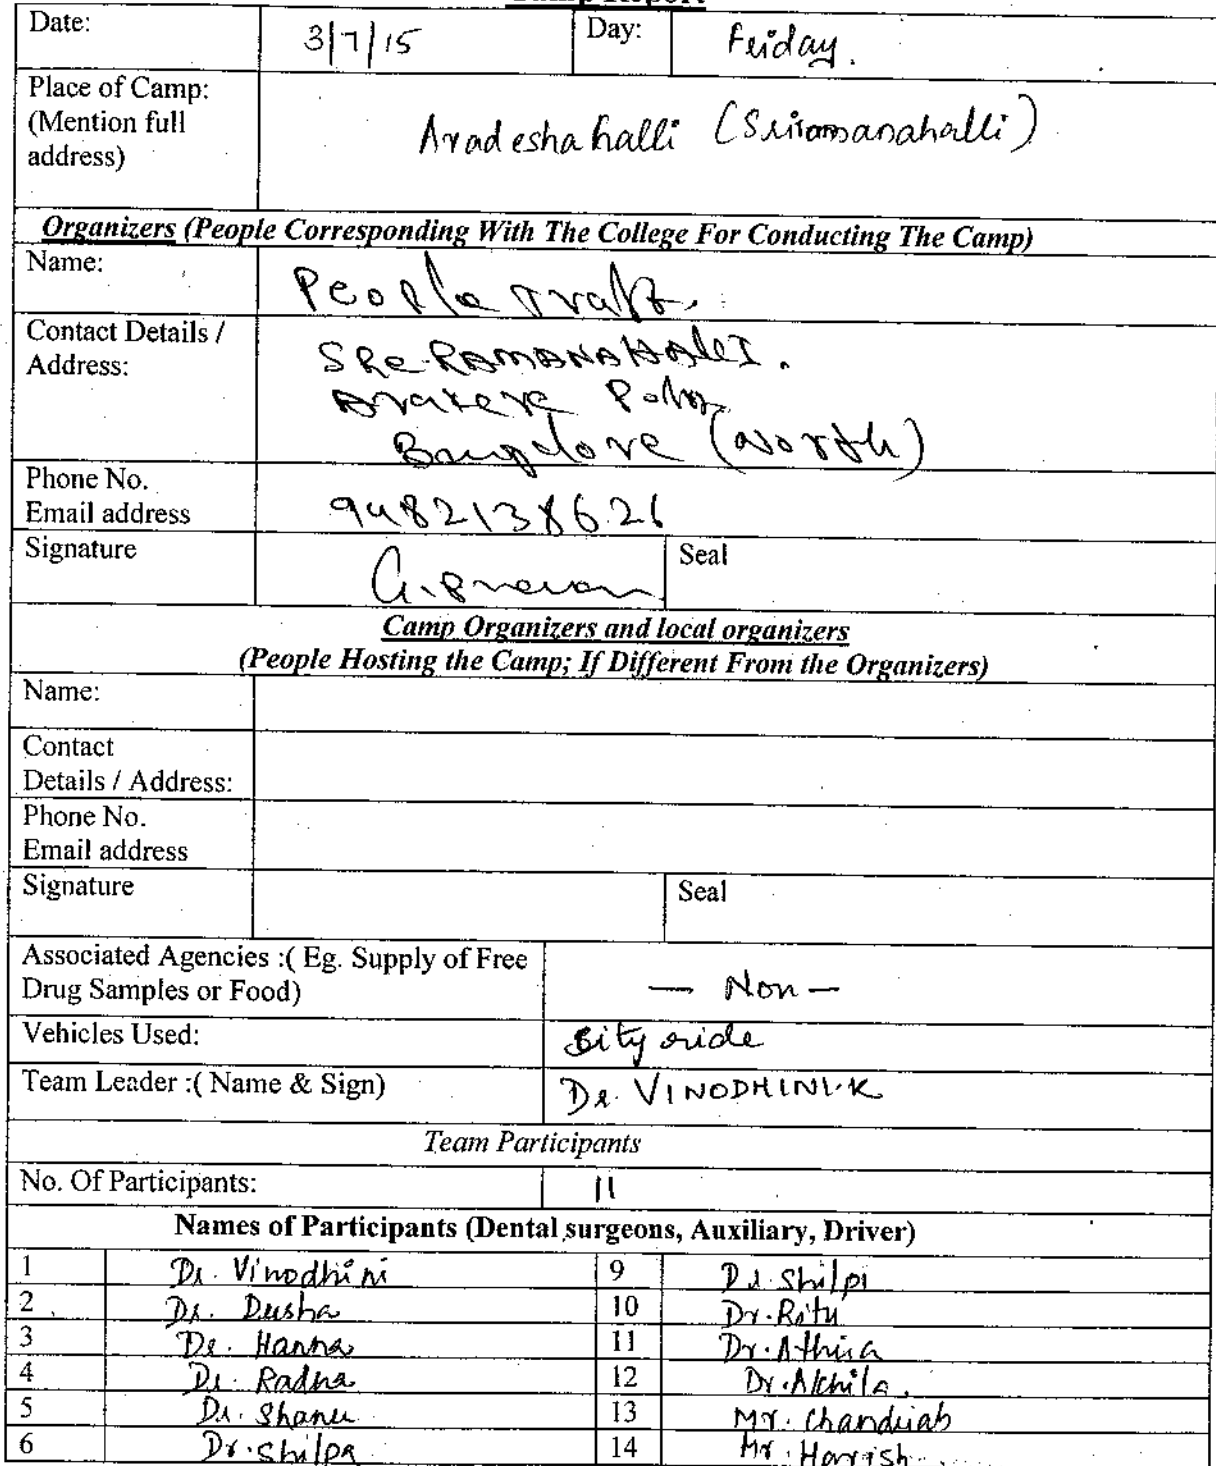 Camp Report
Date: 3/7/15 Day: Friday.
Place of Camp:
(Mention full
address)
Aradeshahalli (Sriramanahalli)
Organizers (People Corresponding With The College For Conducting The Camp)
Name: People Trust.
Contact Details /
Address:
SRe-RAMANAHALLI.
Arakere
Bangalore (North)
Phone No.
Email address
9482138626
Signature
Seal
Camp Organizers and local organizers
(People Hosting the Camp; If Different From the Organizers)
Name:
Contact
Details / Address:
Phone No.
Email address
Signature
Seal
Associated Agencies :( Eg. Supply of Free
Drug Samples or Food)
— Non —
Vehicles Used: City ride
Team Leader :( Name & Sign) Dr. VINODHINI.K
Team Participants
No. Of Participants: 11
Names of Participants (Dental surgeons, Auxiliary, Driver)
1 Dr. Vinodhini 9 Dr. Shilpi
2 Dr. Dusha 10 Dr. Ritu
3 Dr. Hanna 11 Dr. Athira
4 Dr. Radha 12 Dr. Akhila.
5 Dr. Shanu 13 Mr. Chandrab
6 Dr. Shilpa 14 Mr. Harrish